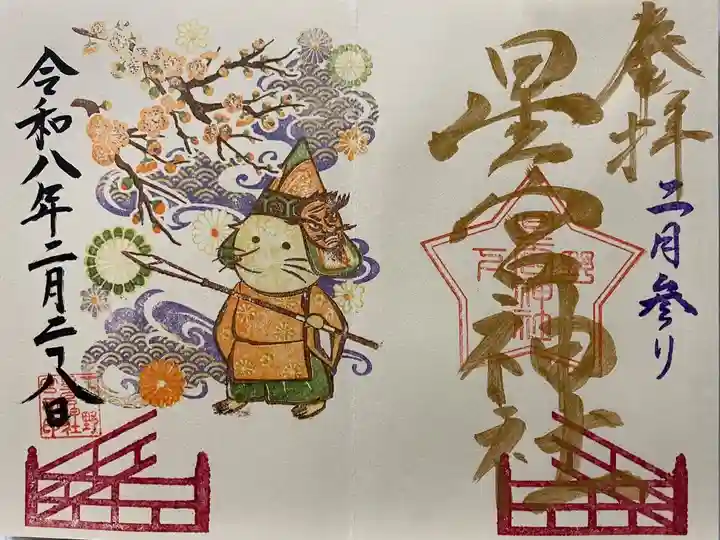 奉拝
二月参り
星宮神社
令和八年二月二十八日